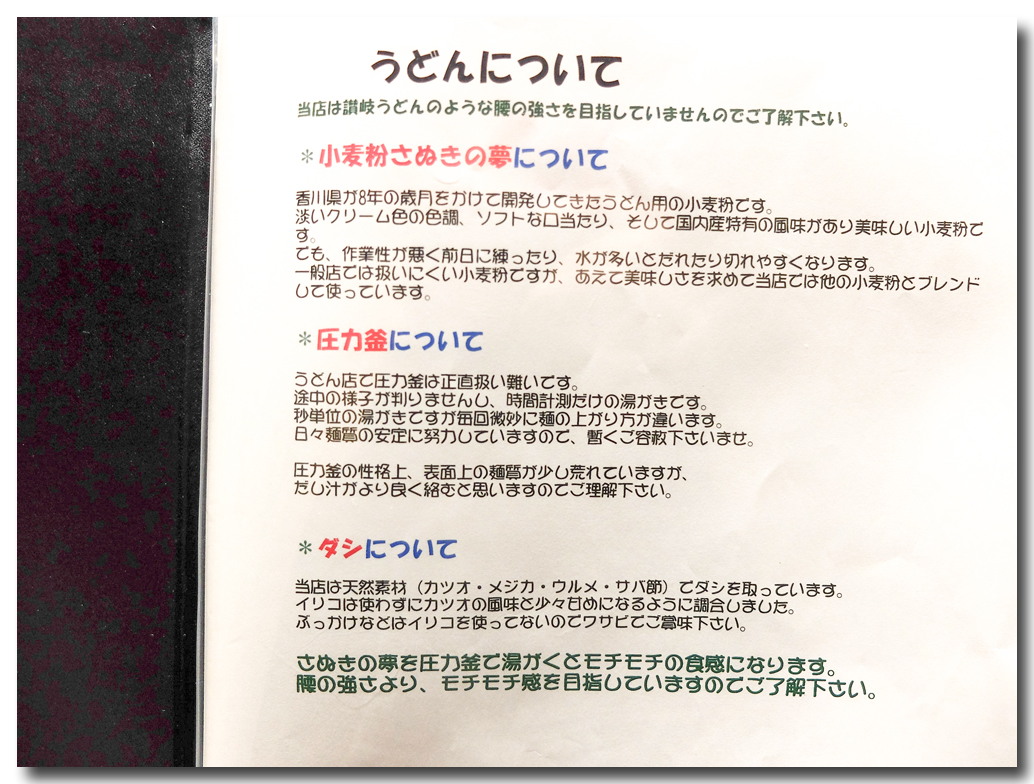 うどんについて
当店は讃岐うどんのような腰の強さを目指していませんのでご了解下さい。
＊小麦粉さぬきの夢について
香川県が8年の歳月をかけて開発してきたうどん用の小麦粉です。
淡いクリーム色の色調、ソフトな口当たり、そして国内産特有の風味があり美味しい小麦粉で
す。
でも、作業性が悪く前日に練ったり、水が多いとだれたり切れやすくなります。
一般店では扱いにくい小麦粉ですが、あえて美味しさを求めて当店では他の小麦粉とブレンド
して使っています。
＊圧力釜について
うどん店で圧力釜は正直扱い難いです。
途中の様子が判りませんし、時間計測だけの湯がきです。
秒単位の湯がきですが毎回微妙に麺の上がり方が違います。
日々麺質の安定に努力していますので、暫くご容赦下さいませ。
圧力釜の性格上、表面上の麺質が少し荒れていますが、
だし汁がより良く絡むと思いますのでご理解下さい。
＊ダシについて
当店は天然素材（カツオ・メジカ・ウルメ・サバ節）でダシを取っています。
イリコは使わずにカツオの風味と少々甘めになるように調合しました。
ぶっかけなどはイリコを使ってないのでワサビでご賞味下さい。
さぬきの夢を圧力釜で湯がくとモチモチの食感になります。
腰の強さより、モチモチ感を目指していますのでご了解下さい。